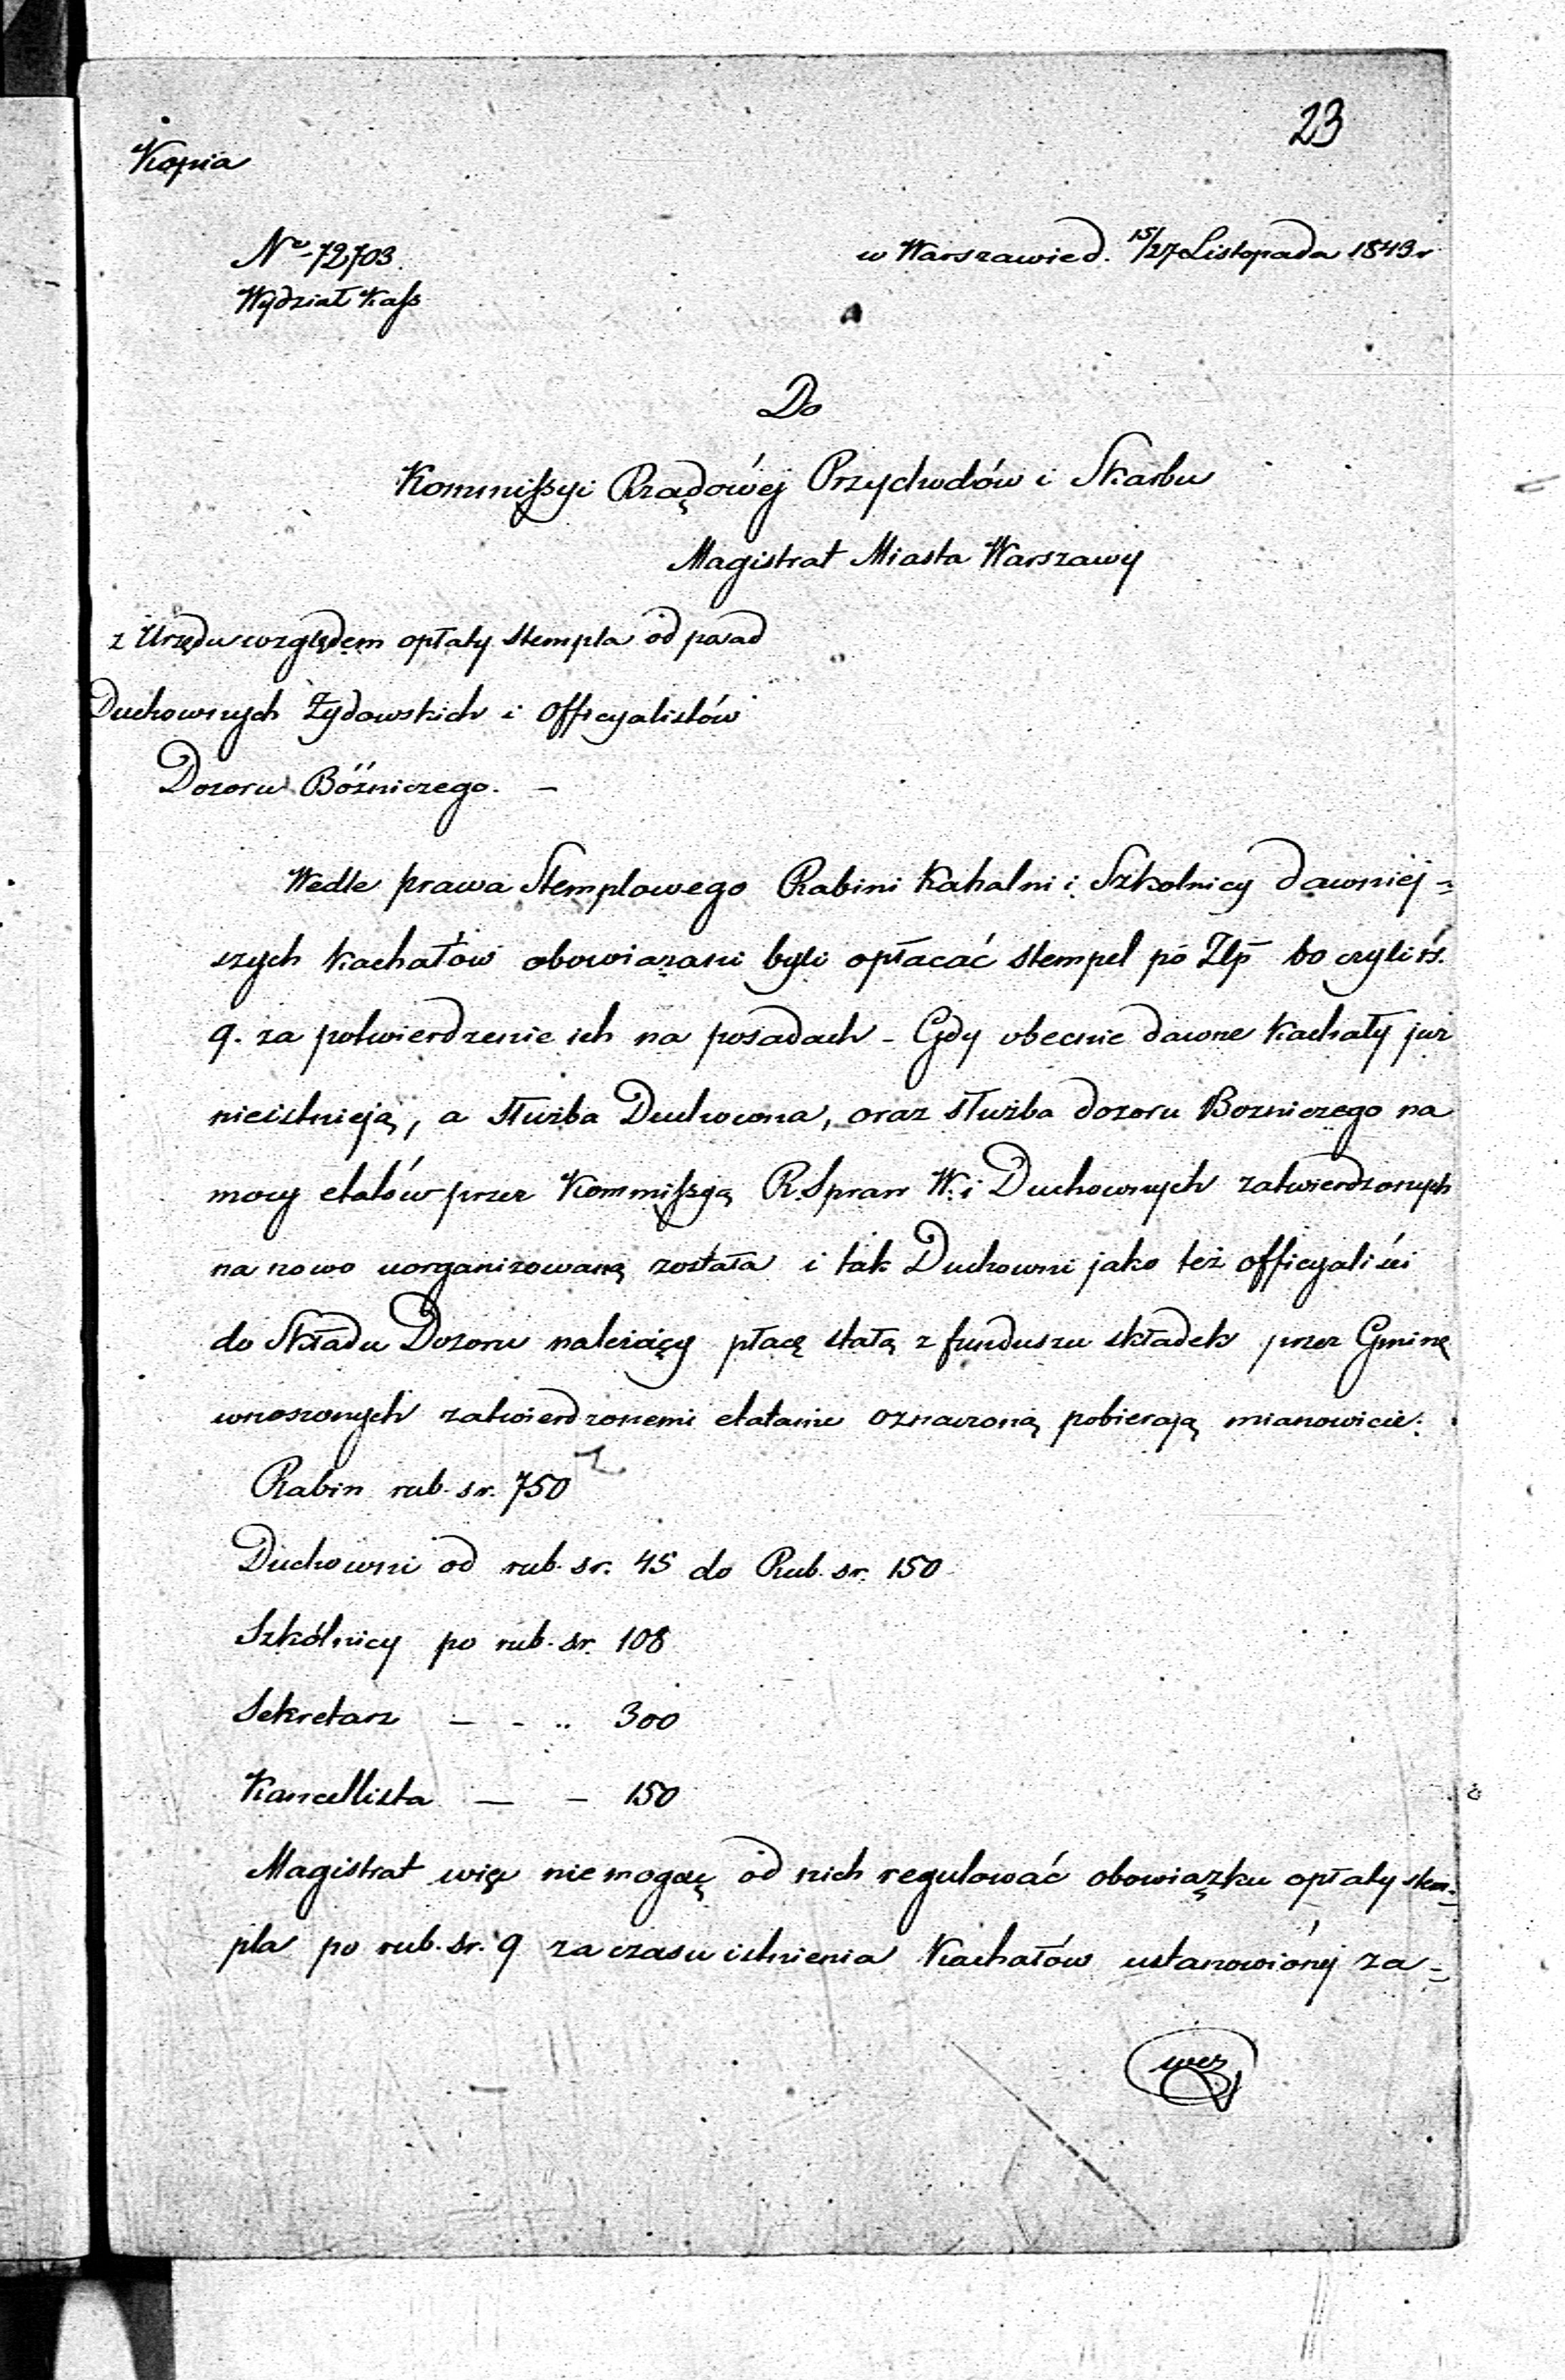 23
Kopia
No 72703.
w Warszawie d. 15/27 Listopada 1843 r
Wydział Kass
Do
Kommissyi Rządowéj Przychodów i Skarbu
Magistrat Miasta Warszawy
z Urzędu względem opłaty stempla od posad
Duchownych Żydowskich i Officyalistów
Dozoru Bóżniczego. –
Wedle prawa Stemplowego Rabini Kahalni i Szkolnicy dawniej=
szych Kachałów obowiązani byli opłacać stempel po Złp 60 czyli rs.
9. za potwierdzenie ich na posadach – Gdy obecnie dawne Kachały już
nieistnieją, a służba Duchowna, oraz służba dozoru Bozniczego na
mocy etatów przez Kommissyą R. Spraw W. i Duchownych zatwierdzonych
na nowo uorganizowaną została i tak Duchowni jako też officyaliści
do Składu Dozoru należący płacę stałą z funduszu składek przez Gminę
wnoszonych zatwierdzonemi etatami oznaczoną pobierają mianowicie:
Rabin rub. sr. 750
Duchowni od rub. sr. 45 do Rub. sr. 150
Szkólnicy po rub. sr. 108
Sekretarz – - .. 300
Kancellista — – 150
Magistrat więc niemogąc od nich regulować obowiązku opłaty stem=
pla po rub. sr. 9 za czasu istnienia Kachałów ustanowionéj za=